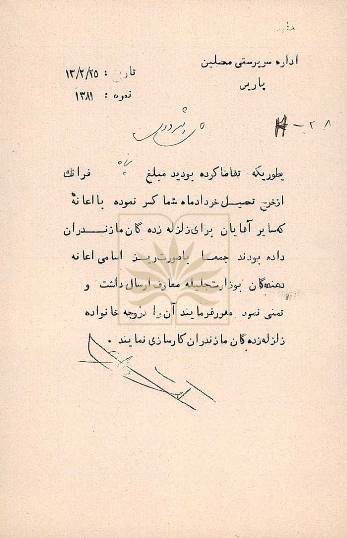 اداره سرپرستی محصلین
پاریس
تاریخ : ۱۳/۲/۲۵
نمره : ۱۳۸۱
۲۸ -
بطوریکه تقاضا کرده بودید مبلغ پنجاه فرانک
از خرج تحصیل خرداد ماه شما کسر نموده با اعانهٔ
که سایر آقایان برای زلزله زده گان مازندران
داده بودند جمعا با صورت ریز اسامی اعانه
دهنده‌گان بوزارت جلیله معارف ارسال داشت و
تمنی نمود مقرر فرمایند آن را بوجه خانواده
زلزله زده گان مازندران کارسازی نمایند .